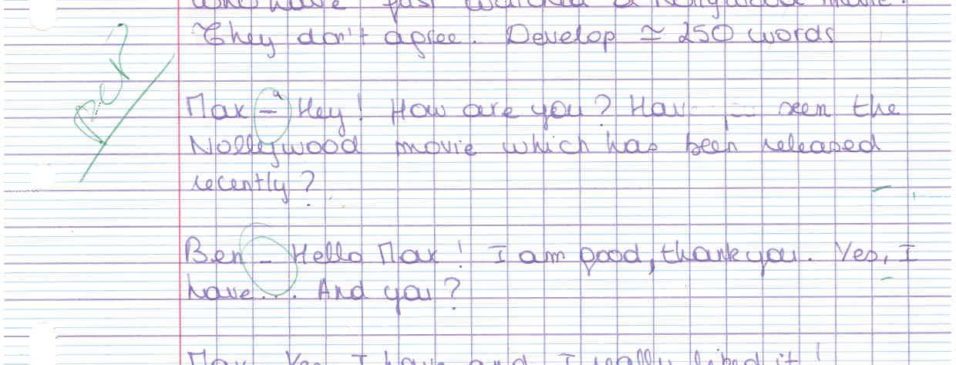 who have just watched a Nollywood movie.
They don't agree. Develop ≃ 250 words
Max - Hey! How are you? Hav seen the
Nollywood movie which has been released
recently?
Ben - Hello Max! I am good, thank you. Yes, I
have... And you?
Max Yes I have and I really liked it!